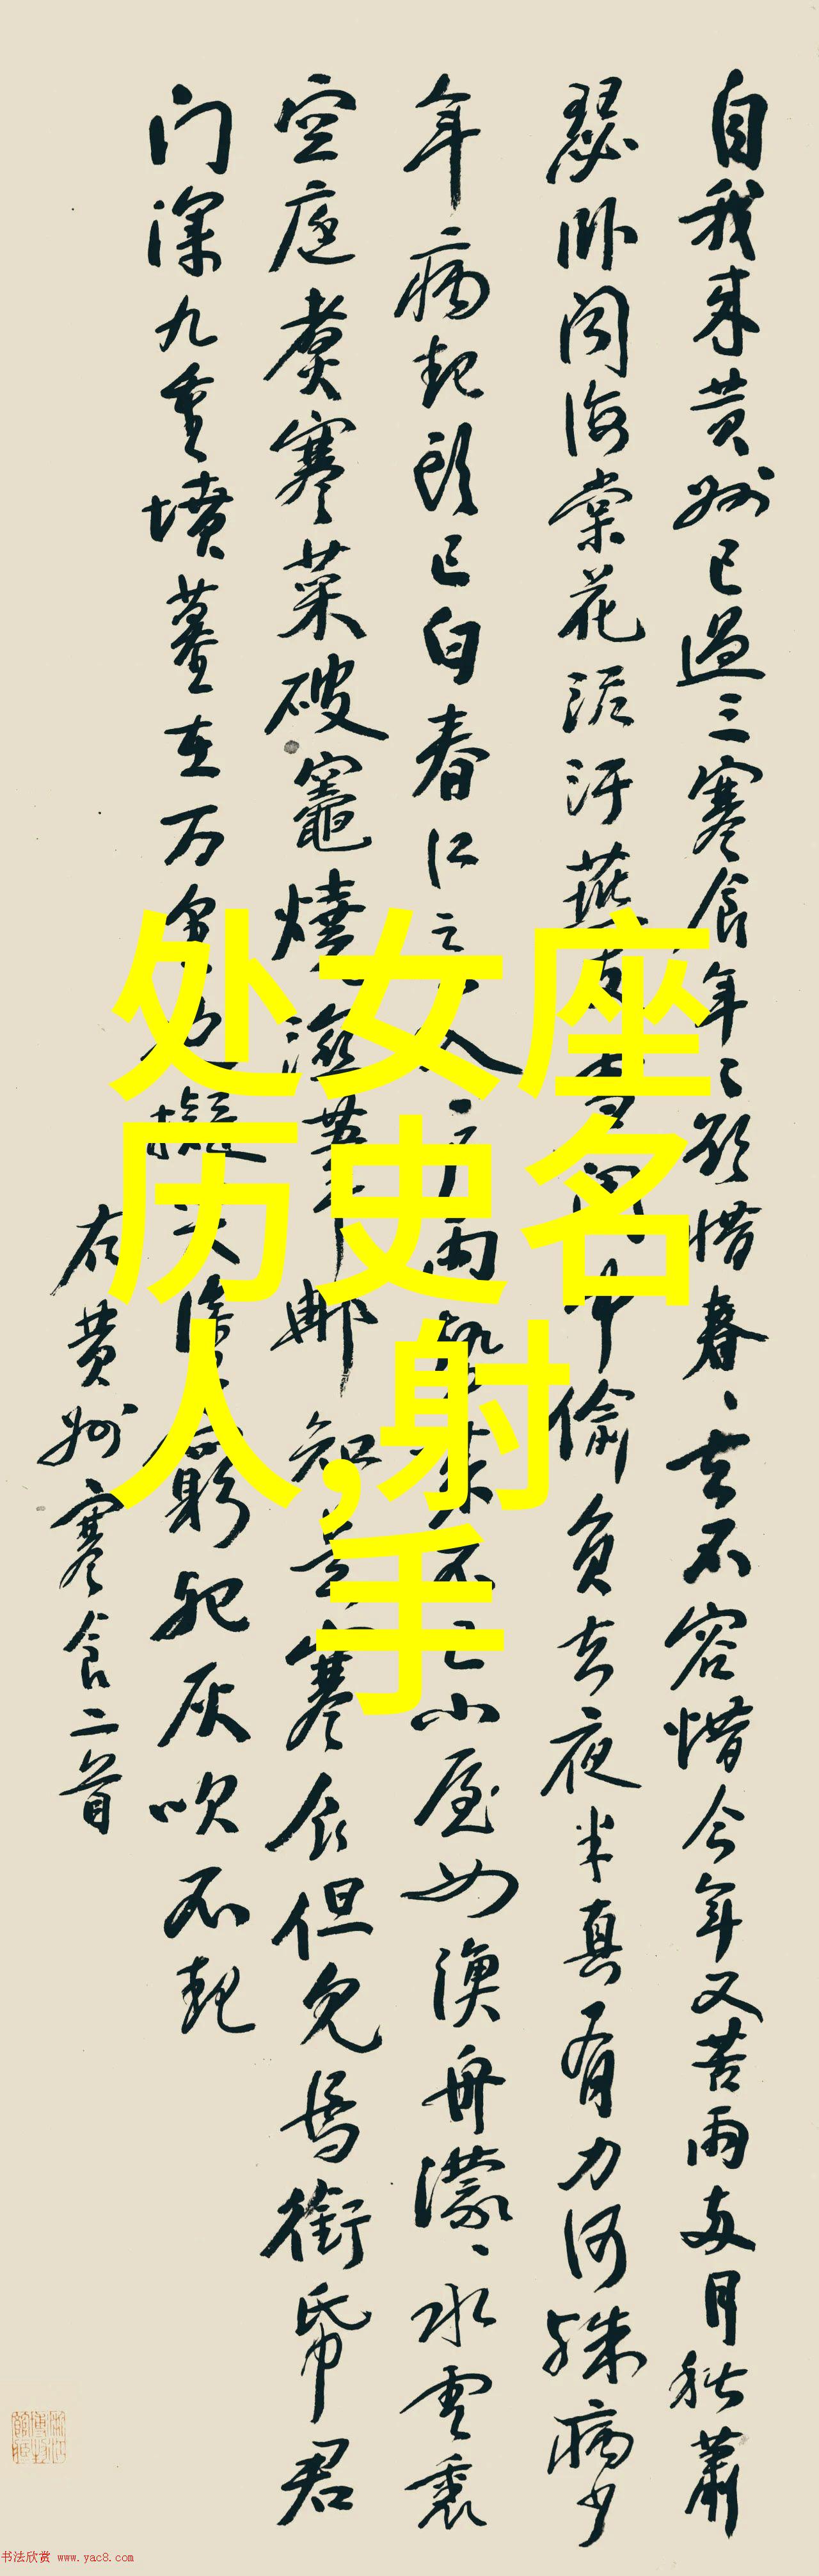 自我来黄州已過三寒食年〻欲惜春〻去不容惜今年又苦雨两月秋蕭
瑟卧闻海棠花泥汙燕支雪闇中偷負去夜半真有力何殊病少
年病起头已白春江欲入户雨势来不已小屋如漁舟濛〻水雲裏
空庖煮寒菜破竈燒濕葦那知是寒食但见烏銜帋君
门深九重墳墓在万里也擬哭途窮死灰吹不起
右黄州寒食二首
处女座
历史名
人,射
手
书法欣赏 www.yac8.com